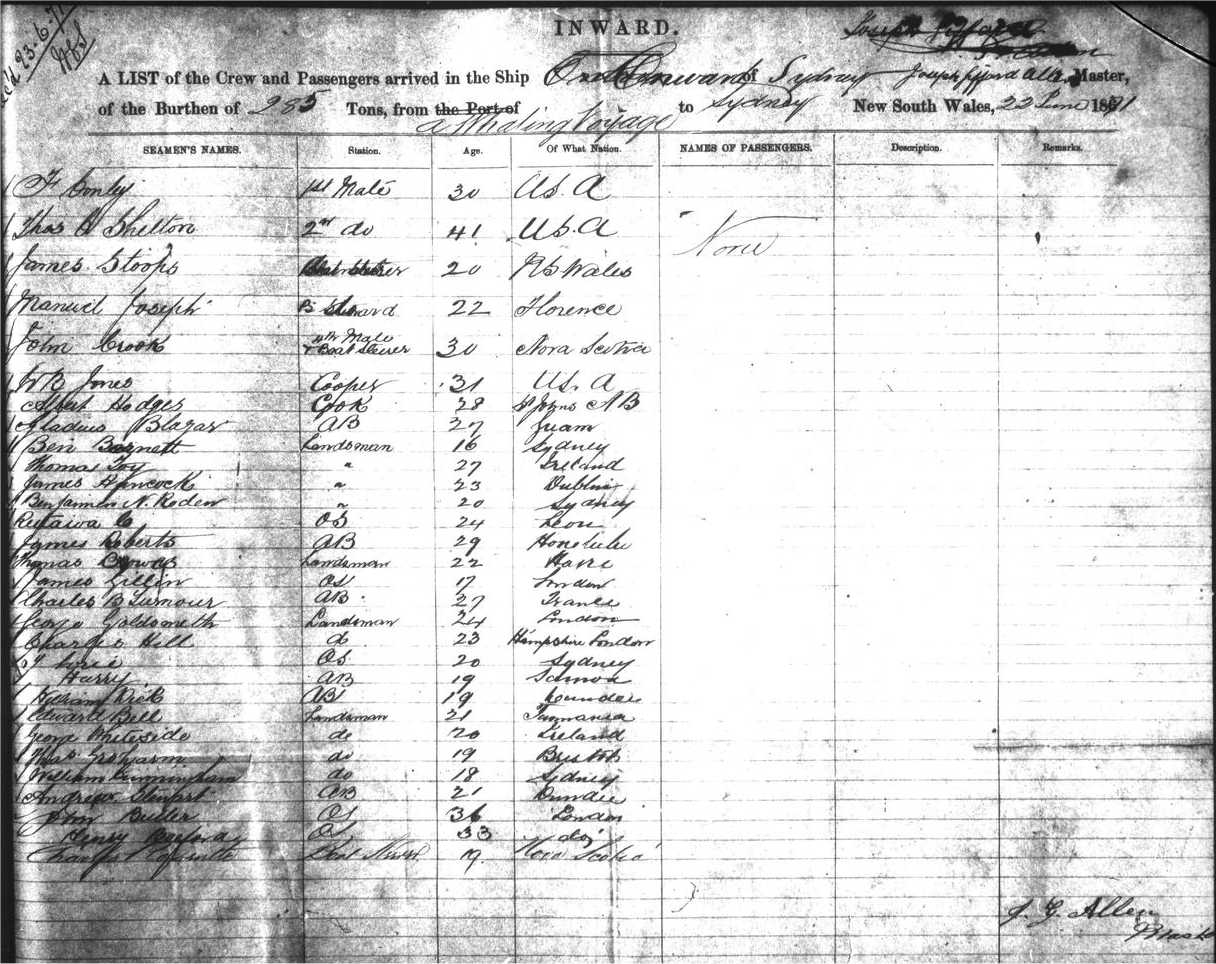 Rec'd 23-6-71
INWARD.
A LIST of the Crew and Passengers arrived in the Ship of Sydney Joseph Gifford Allen, Master,
of the Burthen of 285 Tons, from the Port of a Whaling Voyage to Sydney New South Wales, 22 June 1871
SEAMEN'S NAMES. Station. Age. Of What Nation. NAMES OF PASSENGERS. Description. Remarks.
1st Mate 30 U.S.A
Thos H Shelton 2nd do 41 U.S.A None
James Stoops 20 N S Wales
Manuel Joseph B Steward 22 Florence
John Crook 4th Mate & Boat Steerer 30 Nova Scotia
W R Jones Cooper 31 U.S.A
Albert Hodges Cook 28 St Johns N B
Blazar AB 27 Guam
Ben Barnett Landsman 16 Sydney
Thomas Foy " 27 Ireland
James Hancock " 23 Dublin
Benjamin N. Roden " 20 Sydney
OS 24
James Roberts AB 29 Honolulu
Thomas Landsman 22
James Gillin OS 17 London
Charles B AB 27 France
George Goldsmith Landsman 24 London
Charles Hill do 23 Hampshire London
OS 20 Sydney
Harry AB 19 Samoa
William Dick AB 19 Dundee
Edward Bell Landsman 21 Tasmania
George Whiteside do 20 Ireland
do 19 Bristol
William Cunningham do 18 Sydney
Andrew Stewart AB 21 Dundee
John Butler OS 36 London
Henry OS 33 do
Charles Boat 19 Nova Scotia
J. G. Allen
Master